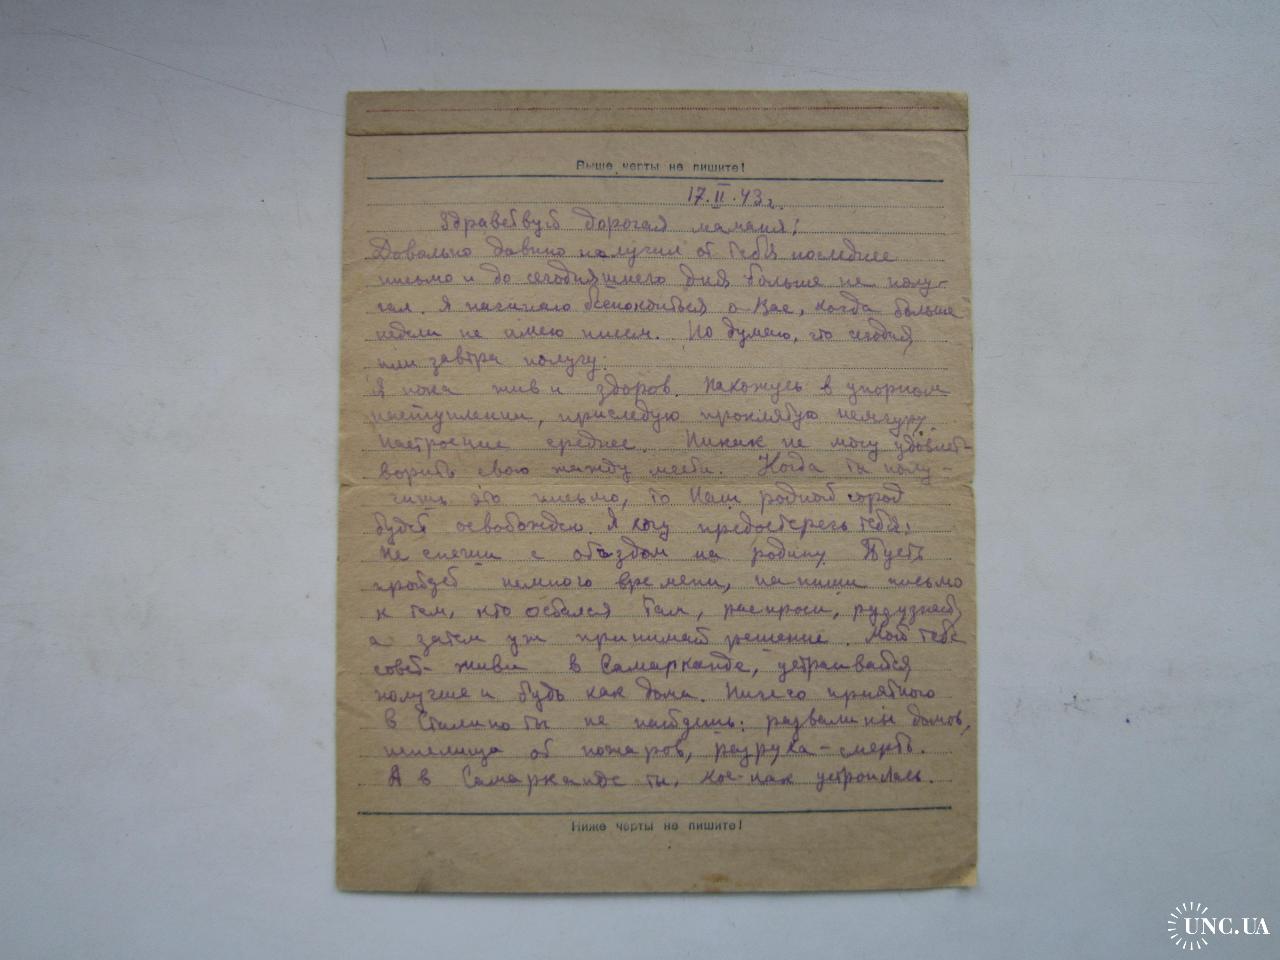 Выше черты не пишите!
17.II.43 г.
Здравствуй дорогая маманя!
Довольно давно получил от тебя последнее
письмо и до сегодняшнего дня больше не полу-
чал. Я начинаю беспокоиться о Вас, когда больше
недели не имею писем. Но думаю, что сегодня
или завтра получу.
Я пока жив и здоров. Нахожусь в упорном
наступлении, приследую проклятую немчуру.
Настроение среднее. Никак не могу удовлет-
ворить свою жажду мести. Когда ты полу-
чишь это письмо, то Наш родной город
будет освобожден. Я хочу предостеречь тебя:
не спеши с отъездом на родину. Пусть
пройдет немного времени, напиши письмо
к тем, кто остался там, распроси,
а затем уж принимай решение. Мой тебе
совет - живи в Самарканде, устраивайся
получше и будь как дома. Ничего приятного
в Сталино ты не найдешь: развалины домов,
пепелища от пожаров, разруха - смерть.
А в Самарканде ты, кое-как устроилась.
Ниже черты не пишите!
UNC.UA